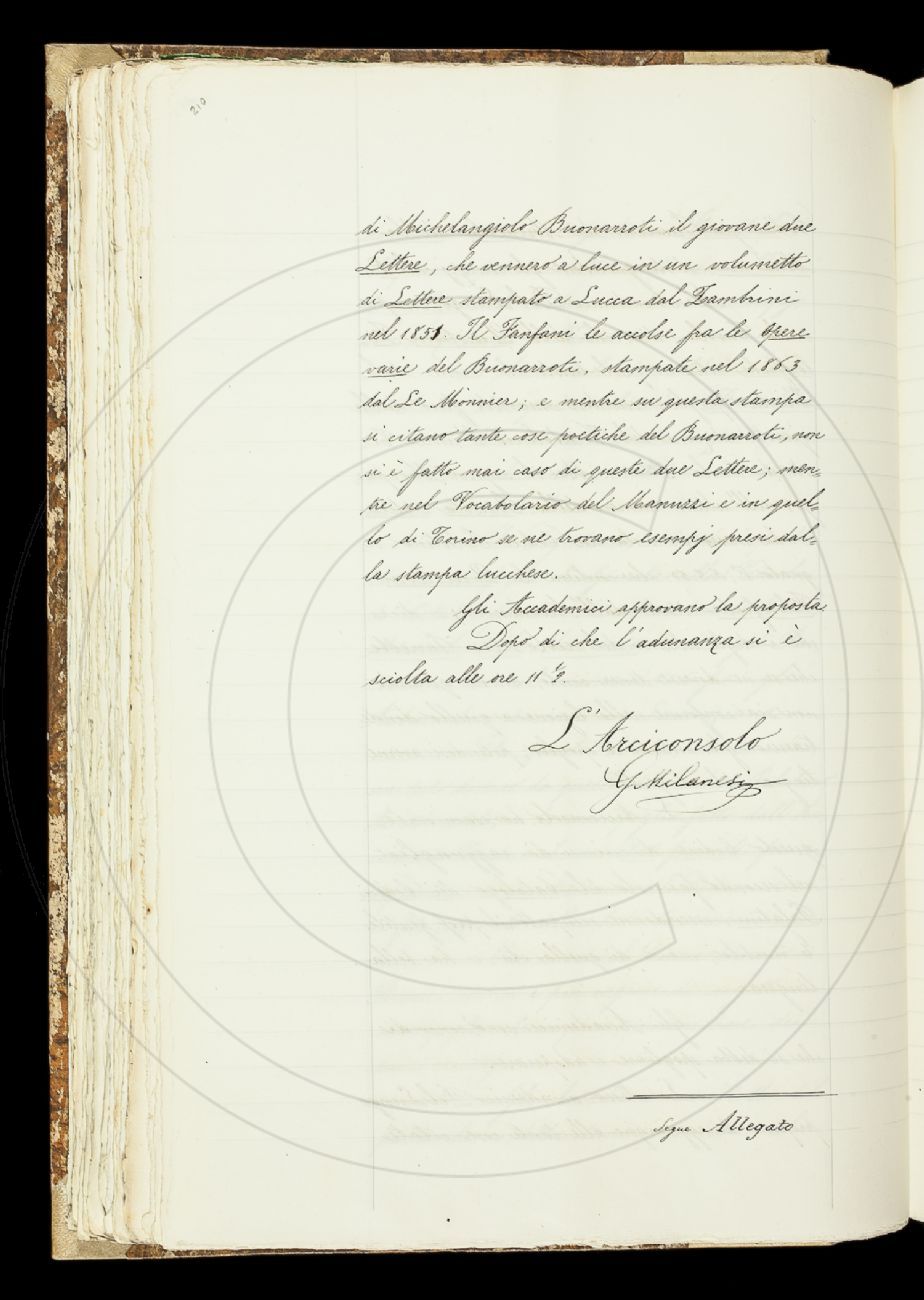 210
di Michelangiolo Buonarroti il giovane due
Lettere, che vennero a luce in un volumetto
di Lettere stampato a Lucca dal Zambrini
nel 1851. Il Fanfani le accolse fra le Opere
varie del Buonarroti, stampate nel 1863
dal Le Monnier; e mentre su questa stampa
si citano tante cose poetiche del Buonarroti, non
si è fatto mai caso di queste due Lettere; men=
tre nel Vocabolario del Manuzzi e in quel=
lo di Torino se ne trovano esempj presi dal=
la stampa lucchese.
Gli Accademici approvano la proposta.
Dopo di che l'adunanza si è
sciolta alle ore 11 ½.
L'Arciconsolo
G Milanesi
Segue Allegato